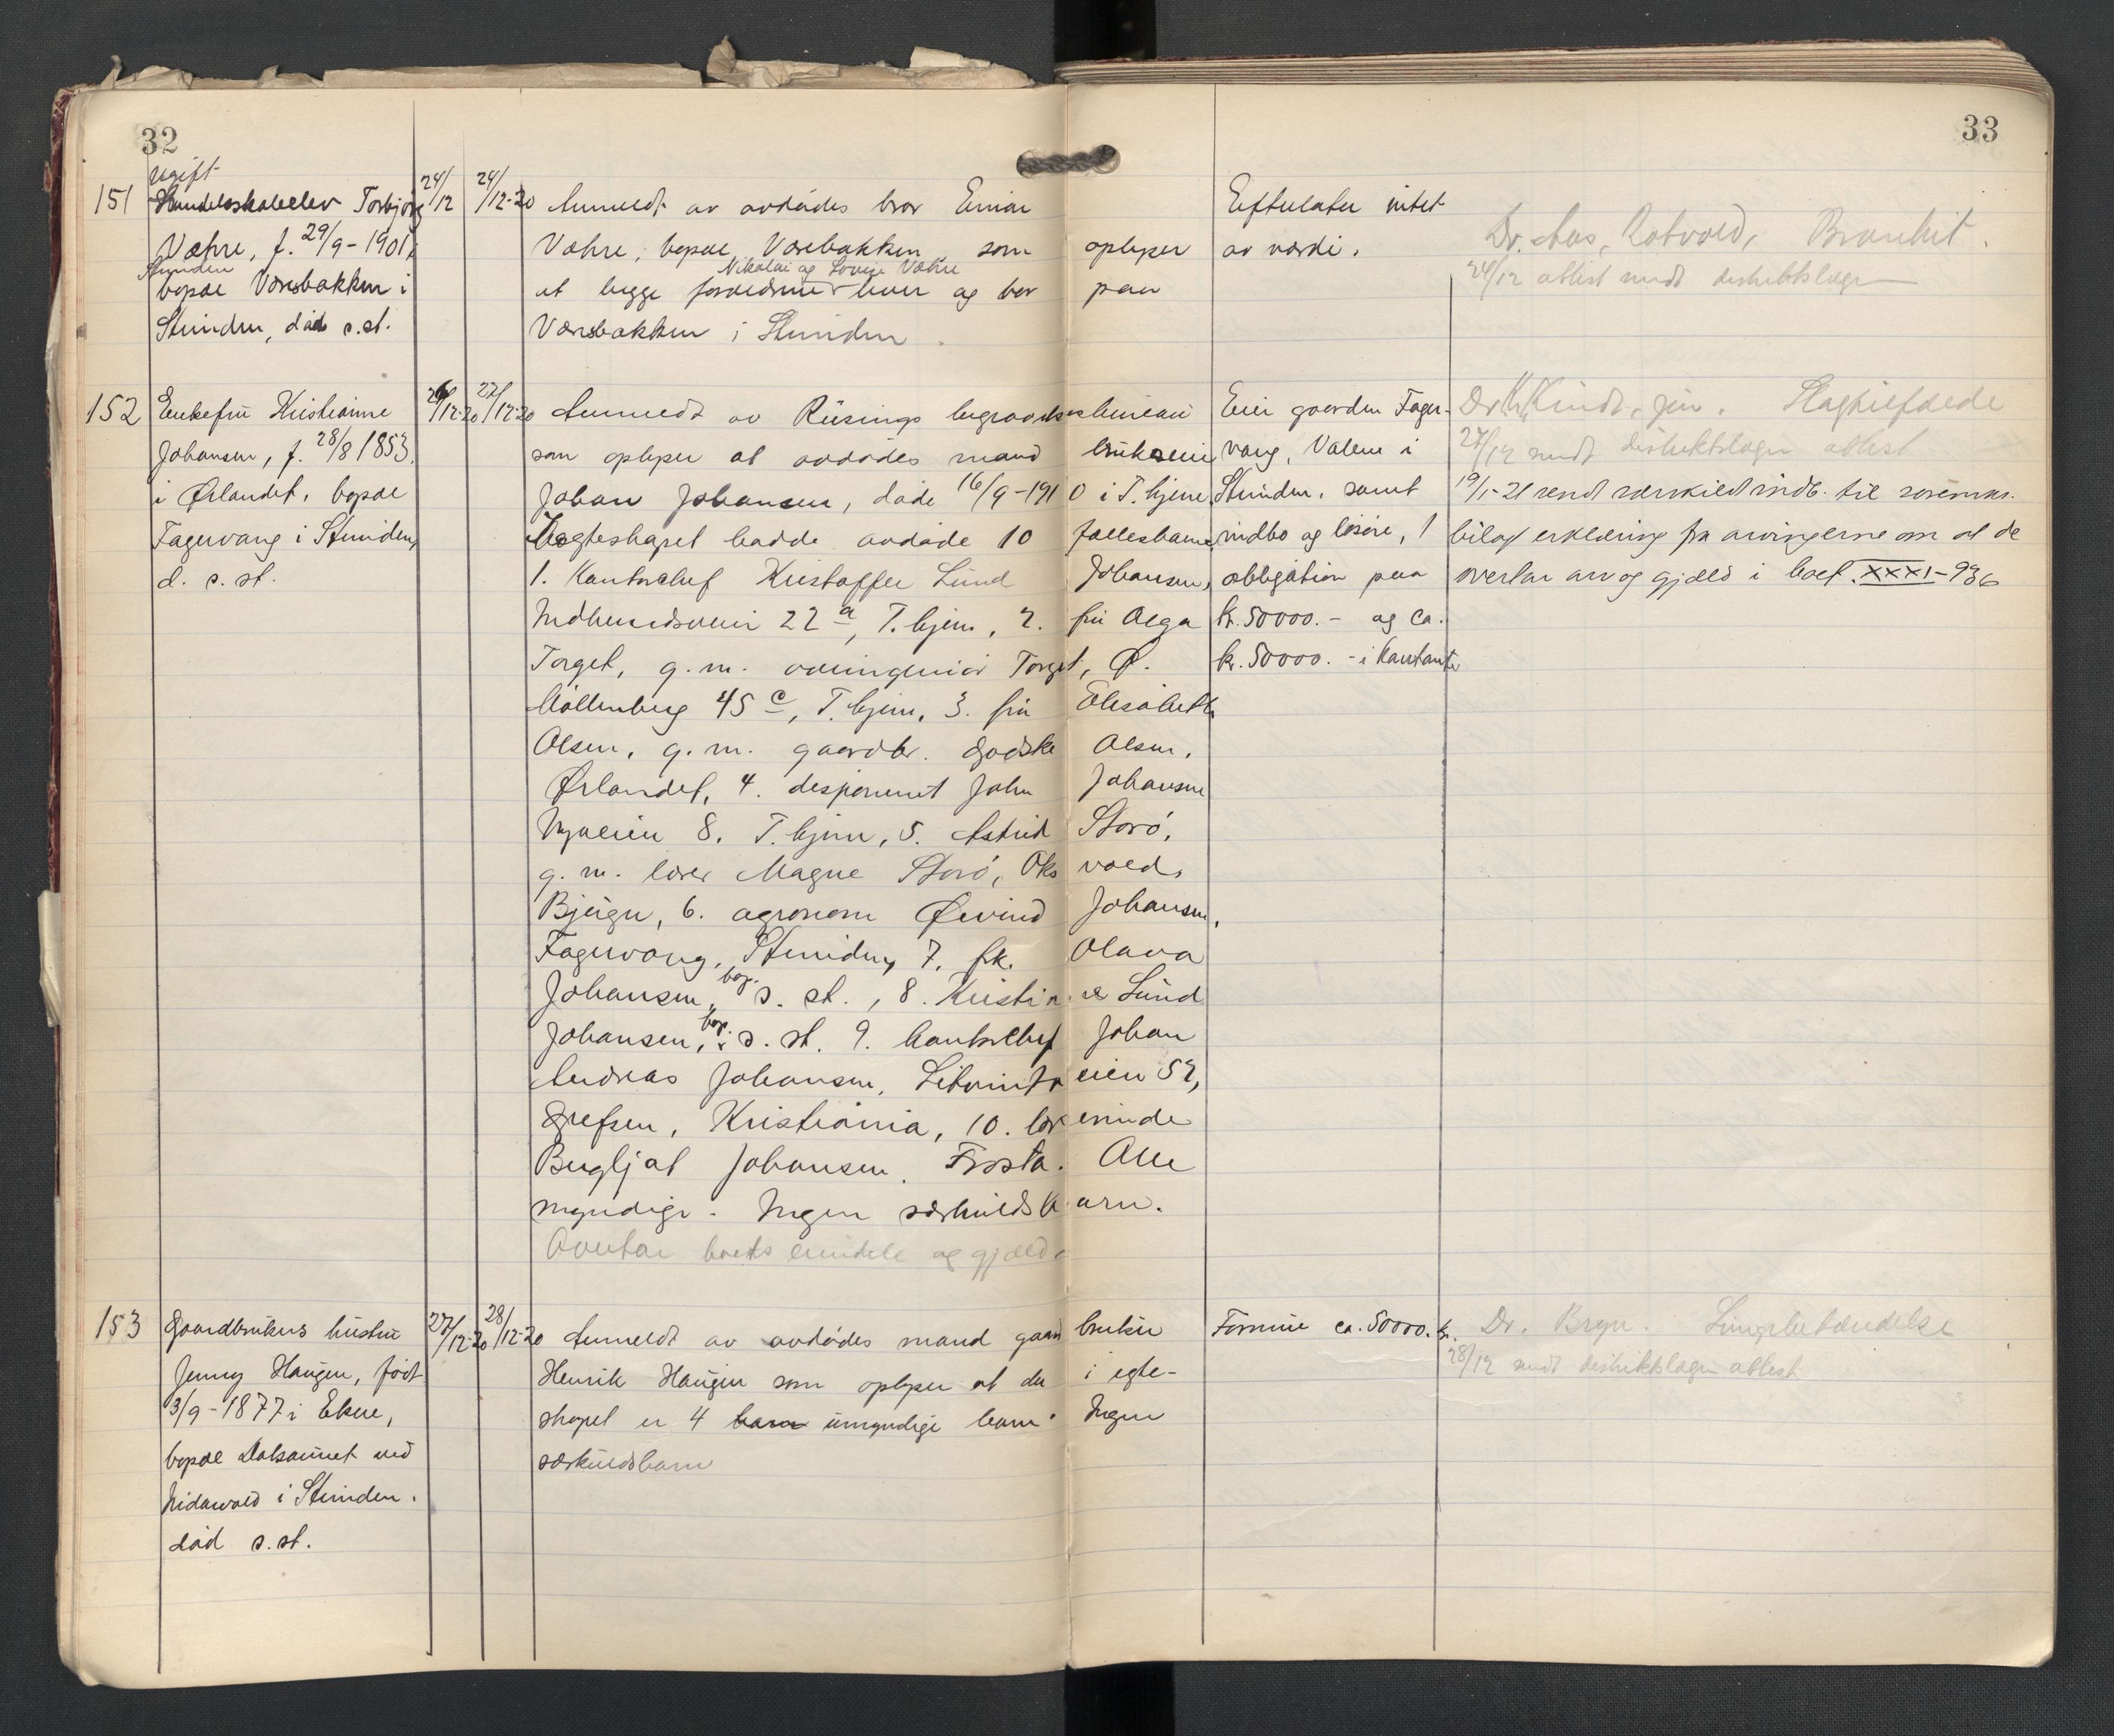 32
33
151
ugift
Handelsskoleelev Torbjørg
Væhre, f. 29/9-1901,
Strinden
bopæl Væresbakken i
Strinden, død s.st.
24/12
24/12-20
Anmeldt av avdødes bror Einar
Væhre, bopæl Væresbakken, som oplyser
Nikolai og Lovise Væhre
at begge forældrene lever og bor paa
Væresbakken i Strinden.
Efterlater intet
av værdi.
Dr. Aas, Rotvold, Bronkit.
24/12 attest sendt distriktslægen
152
Enkefru Kristianne
Johansen, f. 28/8 1853
i Ørlandet, bopæl
Fagervang i Strinden,
d. s. st.
26/12-20
27/12-20
Anmeldt av Riisings begravelsesbureau
som oplyser at avdødes mand brukseier
Johan Johansen, døde 16/9-1910 i T.hjem.
I egteskapet hadde avdøde 10 fællesbarn,
1. Kontorchef Kristoffer Lund Johansen,
Indherredsveien 22 a, T.hjem, 2. fru Olga
Torget, g.m. avd.ingeniør Torget, Ø.
Møllenberg 45 c, T.hjem, 3. fru Elisabeth
Olsen, g.m. gaardbr. Godske Olsen,
Ørlandet, 4. disponent John Johansen
Nyveien 8, T.hjem, 5. Astrid Storø,
g.m. lærer Magne Storø, Oksvold,
Bjugn, 6. agronom Øivind Johansen,
Fagervang, Strinden, 7. frk. Olava
Johansen, bop. s. st., 8. Kristine Lund
Johansen, bop. s. st. 9. kontorchef Johan
Andreas Johansen, eien 52,
Grefsen, Kristiania, 10. lærerinde
Bergljot Johansen, Frosta. Alle
myndige. Ingen særkuldsbarn.
Overtar boets eiendele og gjæld.
Eier gaarden Fager-
vang, Valene i
Strinden, samt
indbo og løsøre, 1
obligation paa
kr. 50000.- og ca.
kr. 50000.- i kontanter
Dr. K. Kindt, jun. Slagtilfælde
27/12 sendt distriktslægen attest
19/1-21 sendt særskilt indb. til sorenskr.
bilagt erklæring fra arvingerne om at de
overtar arv og gjæld i boet. XXXI-936
153
Gaardbrukers hustru
Jenny Haugen, født
3/9-1877 i Ekne,
bopæl Dalsaunet ved
Nidarvold i Strinden.
død s.st.
27/12-20
28/12-20
Anmeldt av avdødes mand gaardbruker
Henrik Haugen som oplyser at der i egte-
skapet er 4 barn umyndige barn. Ingen
særkuldsbarn
Formue ca. 50000. kr.
Dr. Bryn. Lungebetændelse
28/12 sendt distriktslægen attest